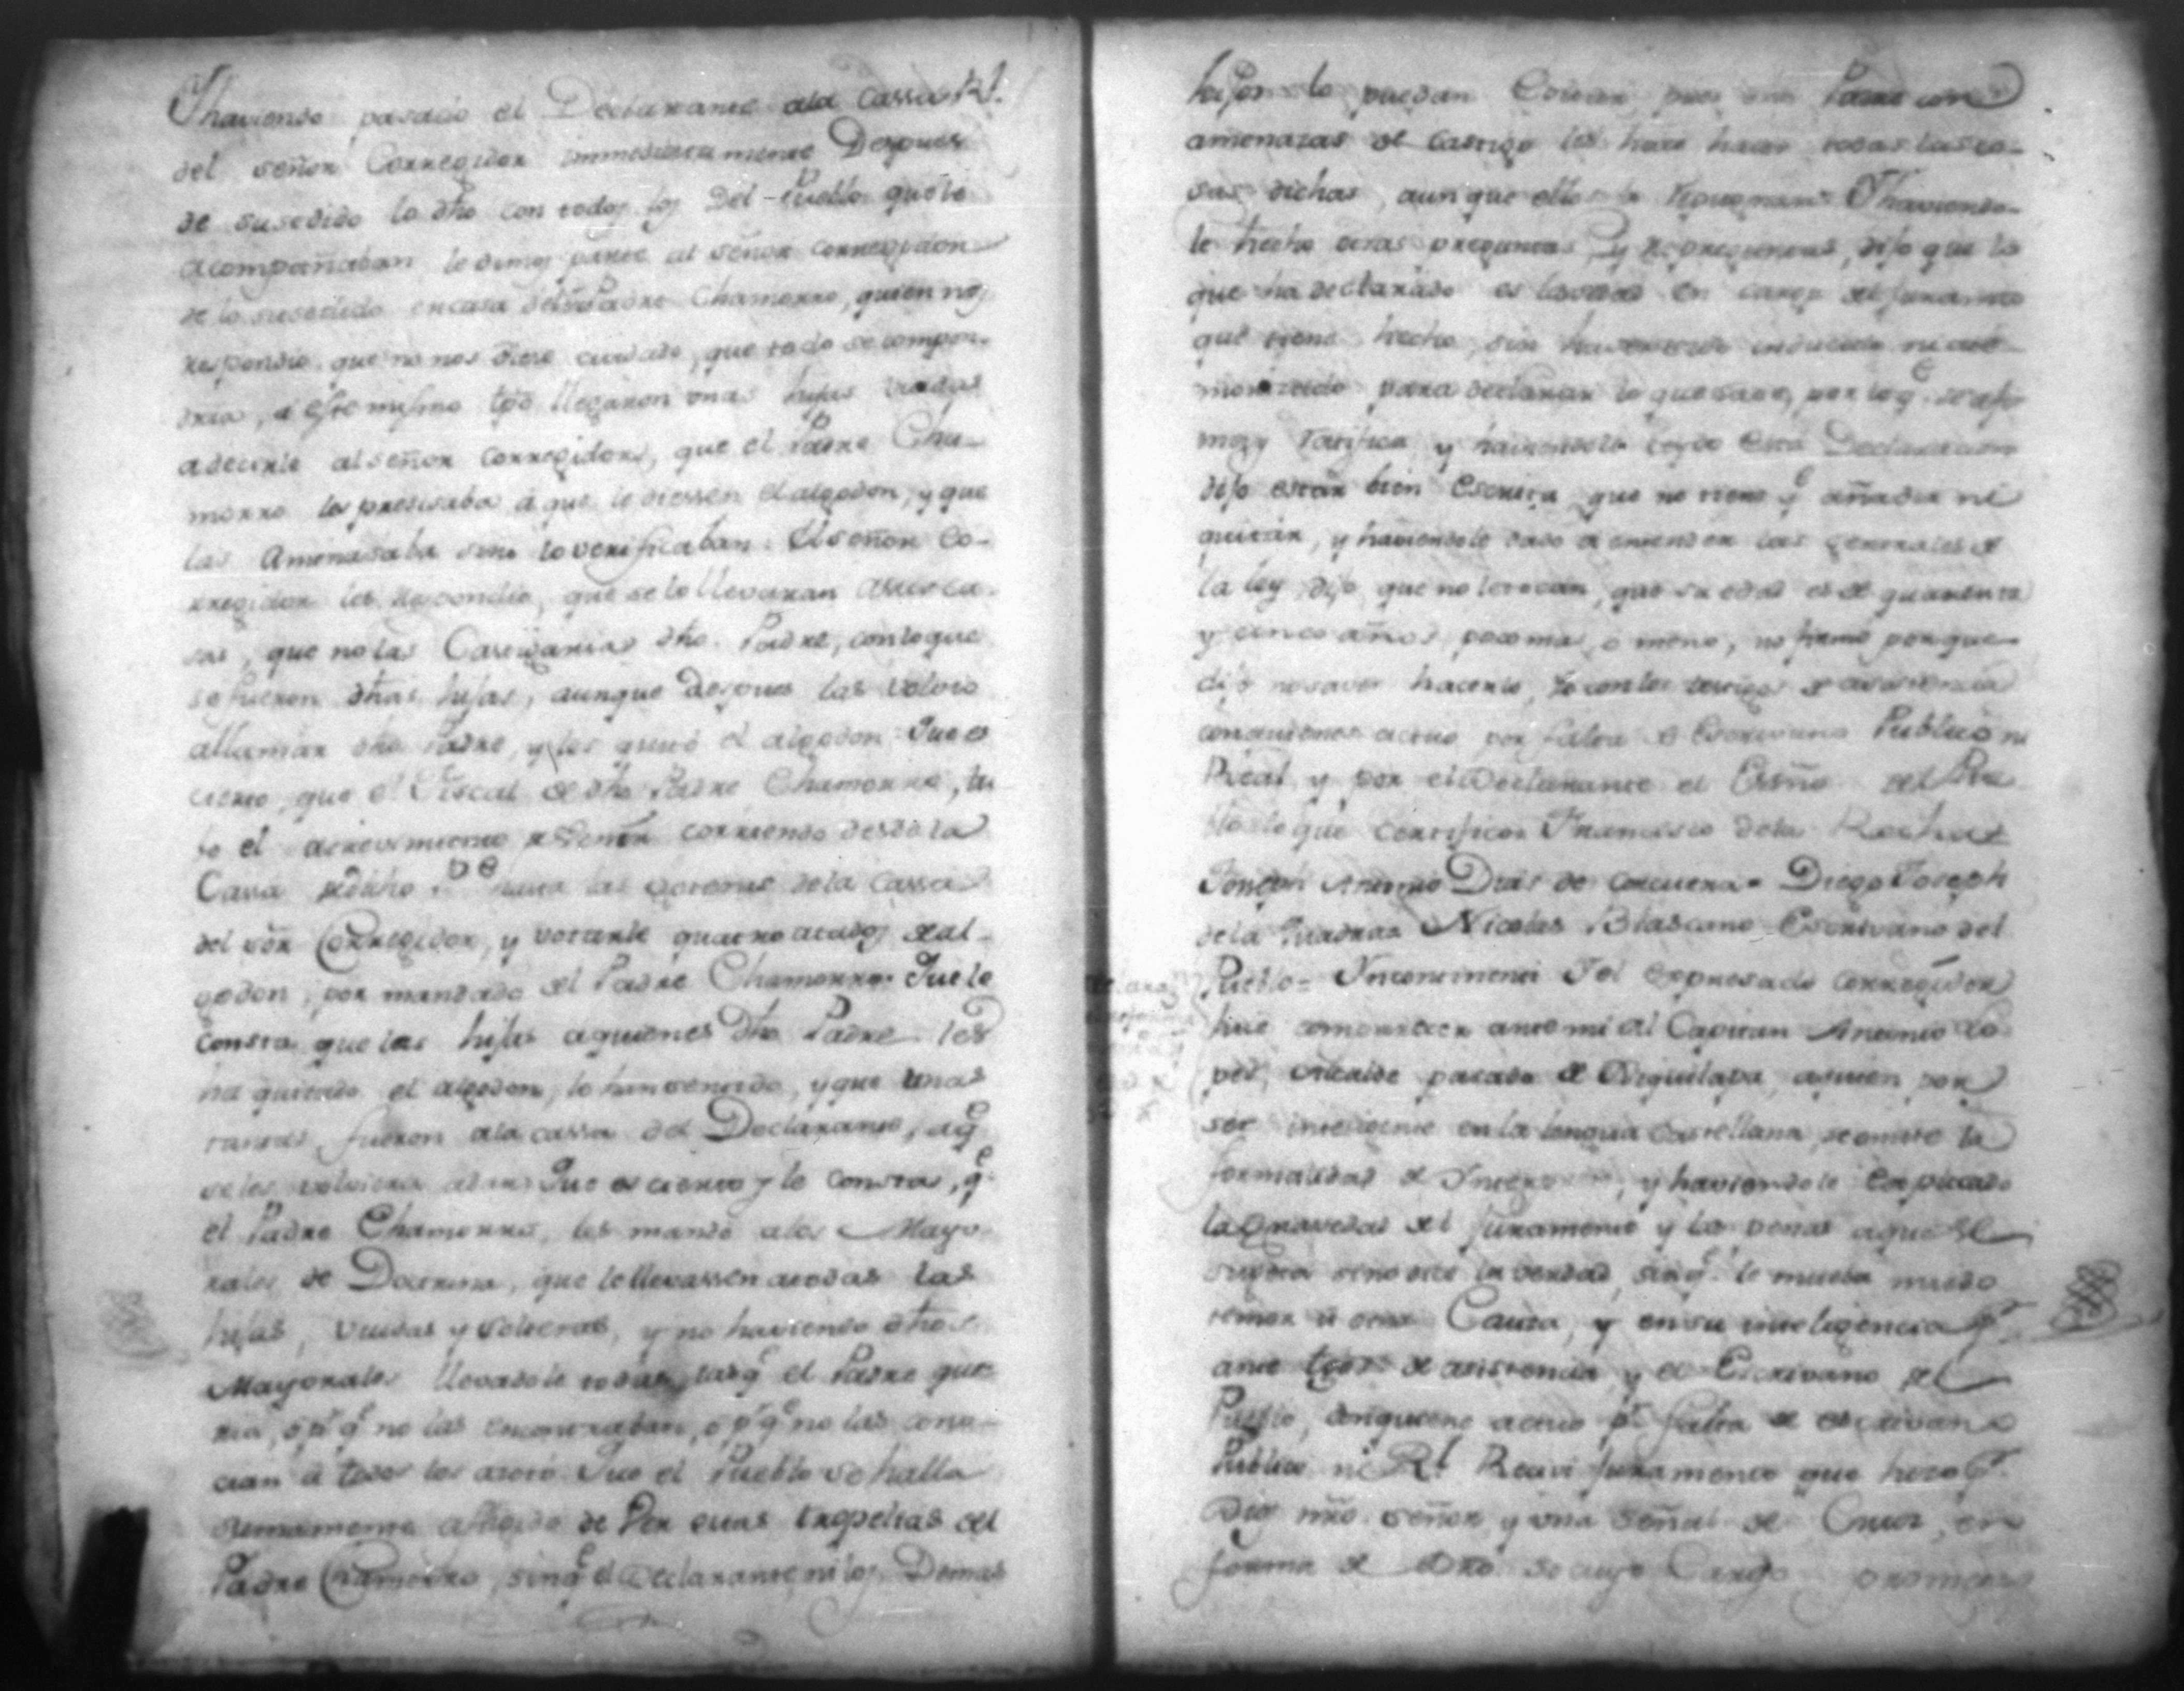 Yhaviendo pasado el Declarante ala Cassa Rl.
del señor Corregidor immediatamente Despues
de susedido lo dho con todos los Del Pueblo que lo
acompañaban le dimos parte al señor Corregidor
de lo susedido en casa del Padre Chamorro, quien nos
respondió que no nos diese cuidado, que todo se compon-
dria, á este mismo tpo llegaron unas hijas viudas
adecirle al señor Corregidor, que el Padre Cha-
morro les presisaba á que le diessen el algodon, y que
las Amenasaba sino lo verificaban. El señor Co-
rregidor les respondió, que se lo llevaran asus ca-
sas, que no las Castigaria dho. Padre, con lo que
se fueron dhas hijas, aunque despues las volvio
allamar dho Padre, y les quitó el algodon Que es
cierto, que el Fiscal de dho Padre Chamorro, tu-
bo el atrevimiento de venir corriendo desde la
Cassa de dicho Pe hasta las de la Cassa
del sõr Corregidor, y votarle quatro atados de al-
godon, por mandado del Padre Chamorro. Que le
consta que las hijas aquienes dho Padre les
ha quitado el algodon, lo han sentido, y que unas
tantas fueron ala cassa del Declarante, aqe
se les volviera adar. Que es cierto y le consta, qe
el Padre Chamorro, les mandó alos Mayo-
rales de Doctrina, que le llevassen atodas las
hijas, viudas y solteras, y no haviendo dhos
Mayorales llevadole todas las qe el Padre que-
ria, ó pr qe no las encontraban, ó pr qe no las cono-
cian á todos los azotó Que el Pueblo se halla
sumamente afligido de Ver estas tropelias del
Padre Chamorro, sin qe el Declarante, ni los Demas
hijos lo puedan Padre con
amenazas de Castigo les hace hacer todas las co-
sas dichas, aunque ellos lo repugnan Yhaviendo-
le hecho otras preguntas, y repreguntas, dijo que lo
que ha declarado es la verdad en cargo del juramto
que tiene hecho, sin haver sido inducido ni ate-
morizado para declarar lo que save, por lo qe se afir-
ma y ratifica y haviendole leydo esta Declaracion
dijo estar bien Escrita, que no tiene qe añadir ni
quitar, y haviendole dado á entender las generales de
la ley dijo que no le tocan, que su edad es de quarenta
y cinco años, poco mas, o meno, no firmó porque
dijo no saver hacerlo, Yo con los testigos de asistencia
conquienes actuo por falta de Escrivano Publico ni
Real y por el Declarante el Essno. del Pue-
blo de lo que certifico= Francisco de la Rocha=
Joseph Antonio Dias de Corcuera= Diego Joseph
de la Quadra= Nicolas Blascano Escrivano del
Pueblo= Yncontinenti Yo el expresado Corregidor
hice comparecer ante mi al Capitan Antonio Lo-
pes, Alcalde pasado de Diquilapa, aquien por
ser inteligente en la lengua Castellana, se omite la
formalidad de Ynter, y haviendole Explicado
la Gravedad del juramento y las penas aque se
sugeta sino dice la verdad, sin qe le mueba miedo
temor ú otra Causa, y en su inteligencia pr
ante tgos de asistencia, y el Escrivano del
Pueblo, conquiene actuo pr falta de escrivano
Publico ni Rl. Recivi juramento que hizo pr
Dios nro señor y una señal de Cruz, en
forma de dro so cuyo Cargo prometio